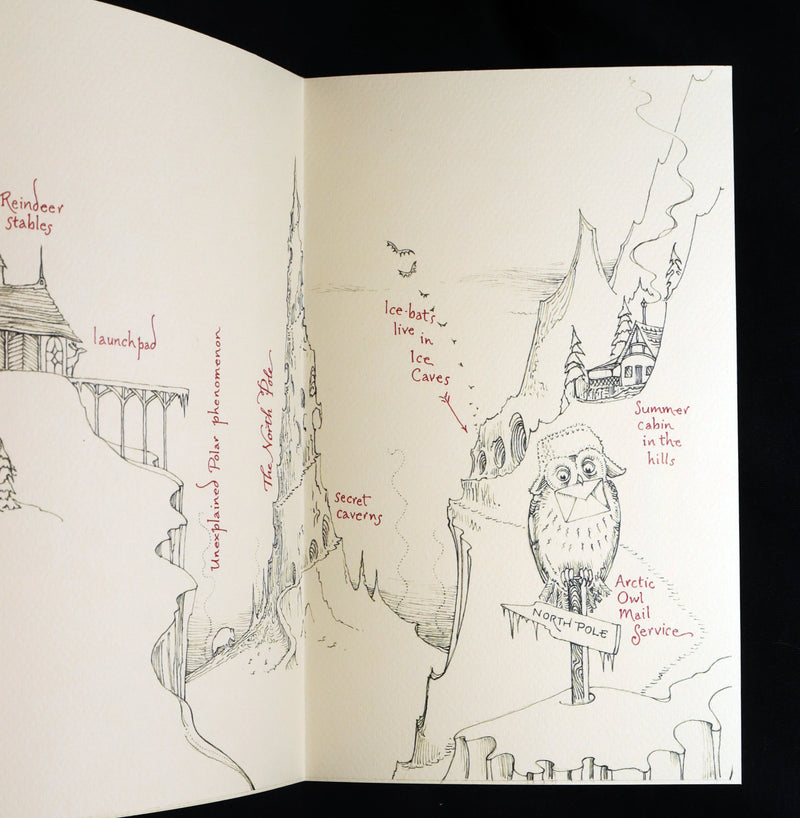 Reindeer
stables
launchpad
Unexplained Polar phenomenon
The North Pole
secret
caverns
Ice-bats
live in
Ice
Caves
Summer
cabin
in the
hills
Arctic
Owl
Mail
Service
NORTH POLE